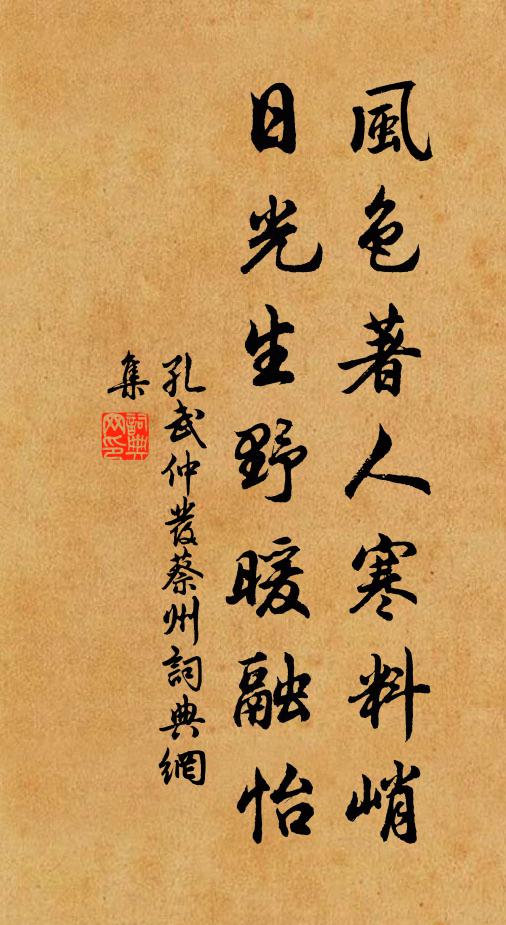 風色著人寒料峭
日光生野暖融怡
孔武仲發蔡州詞典網
集
詞典
网印